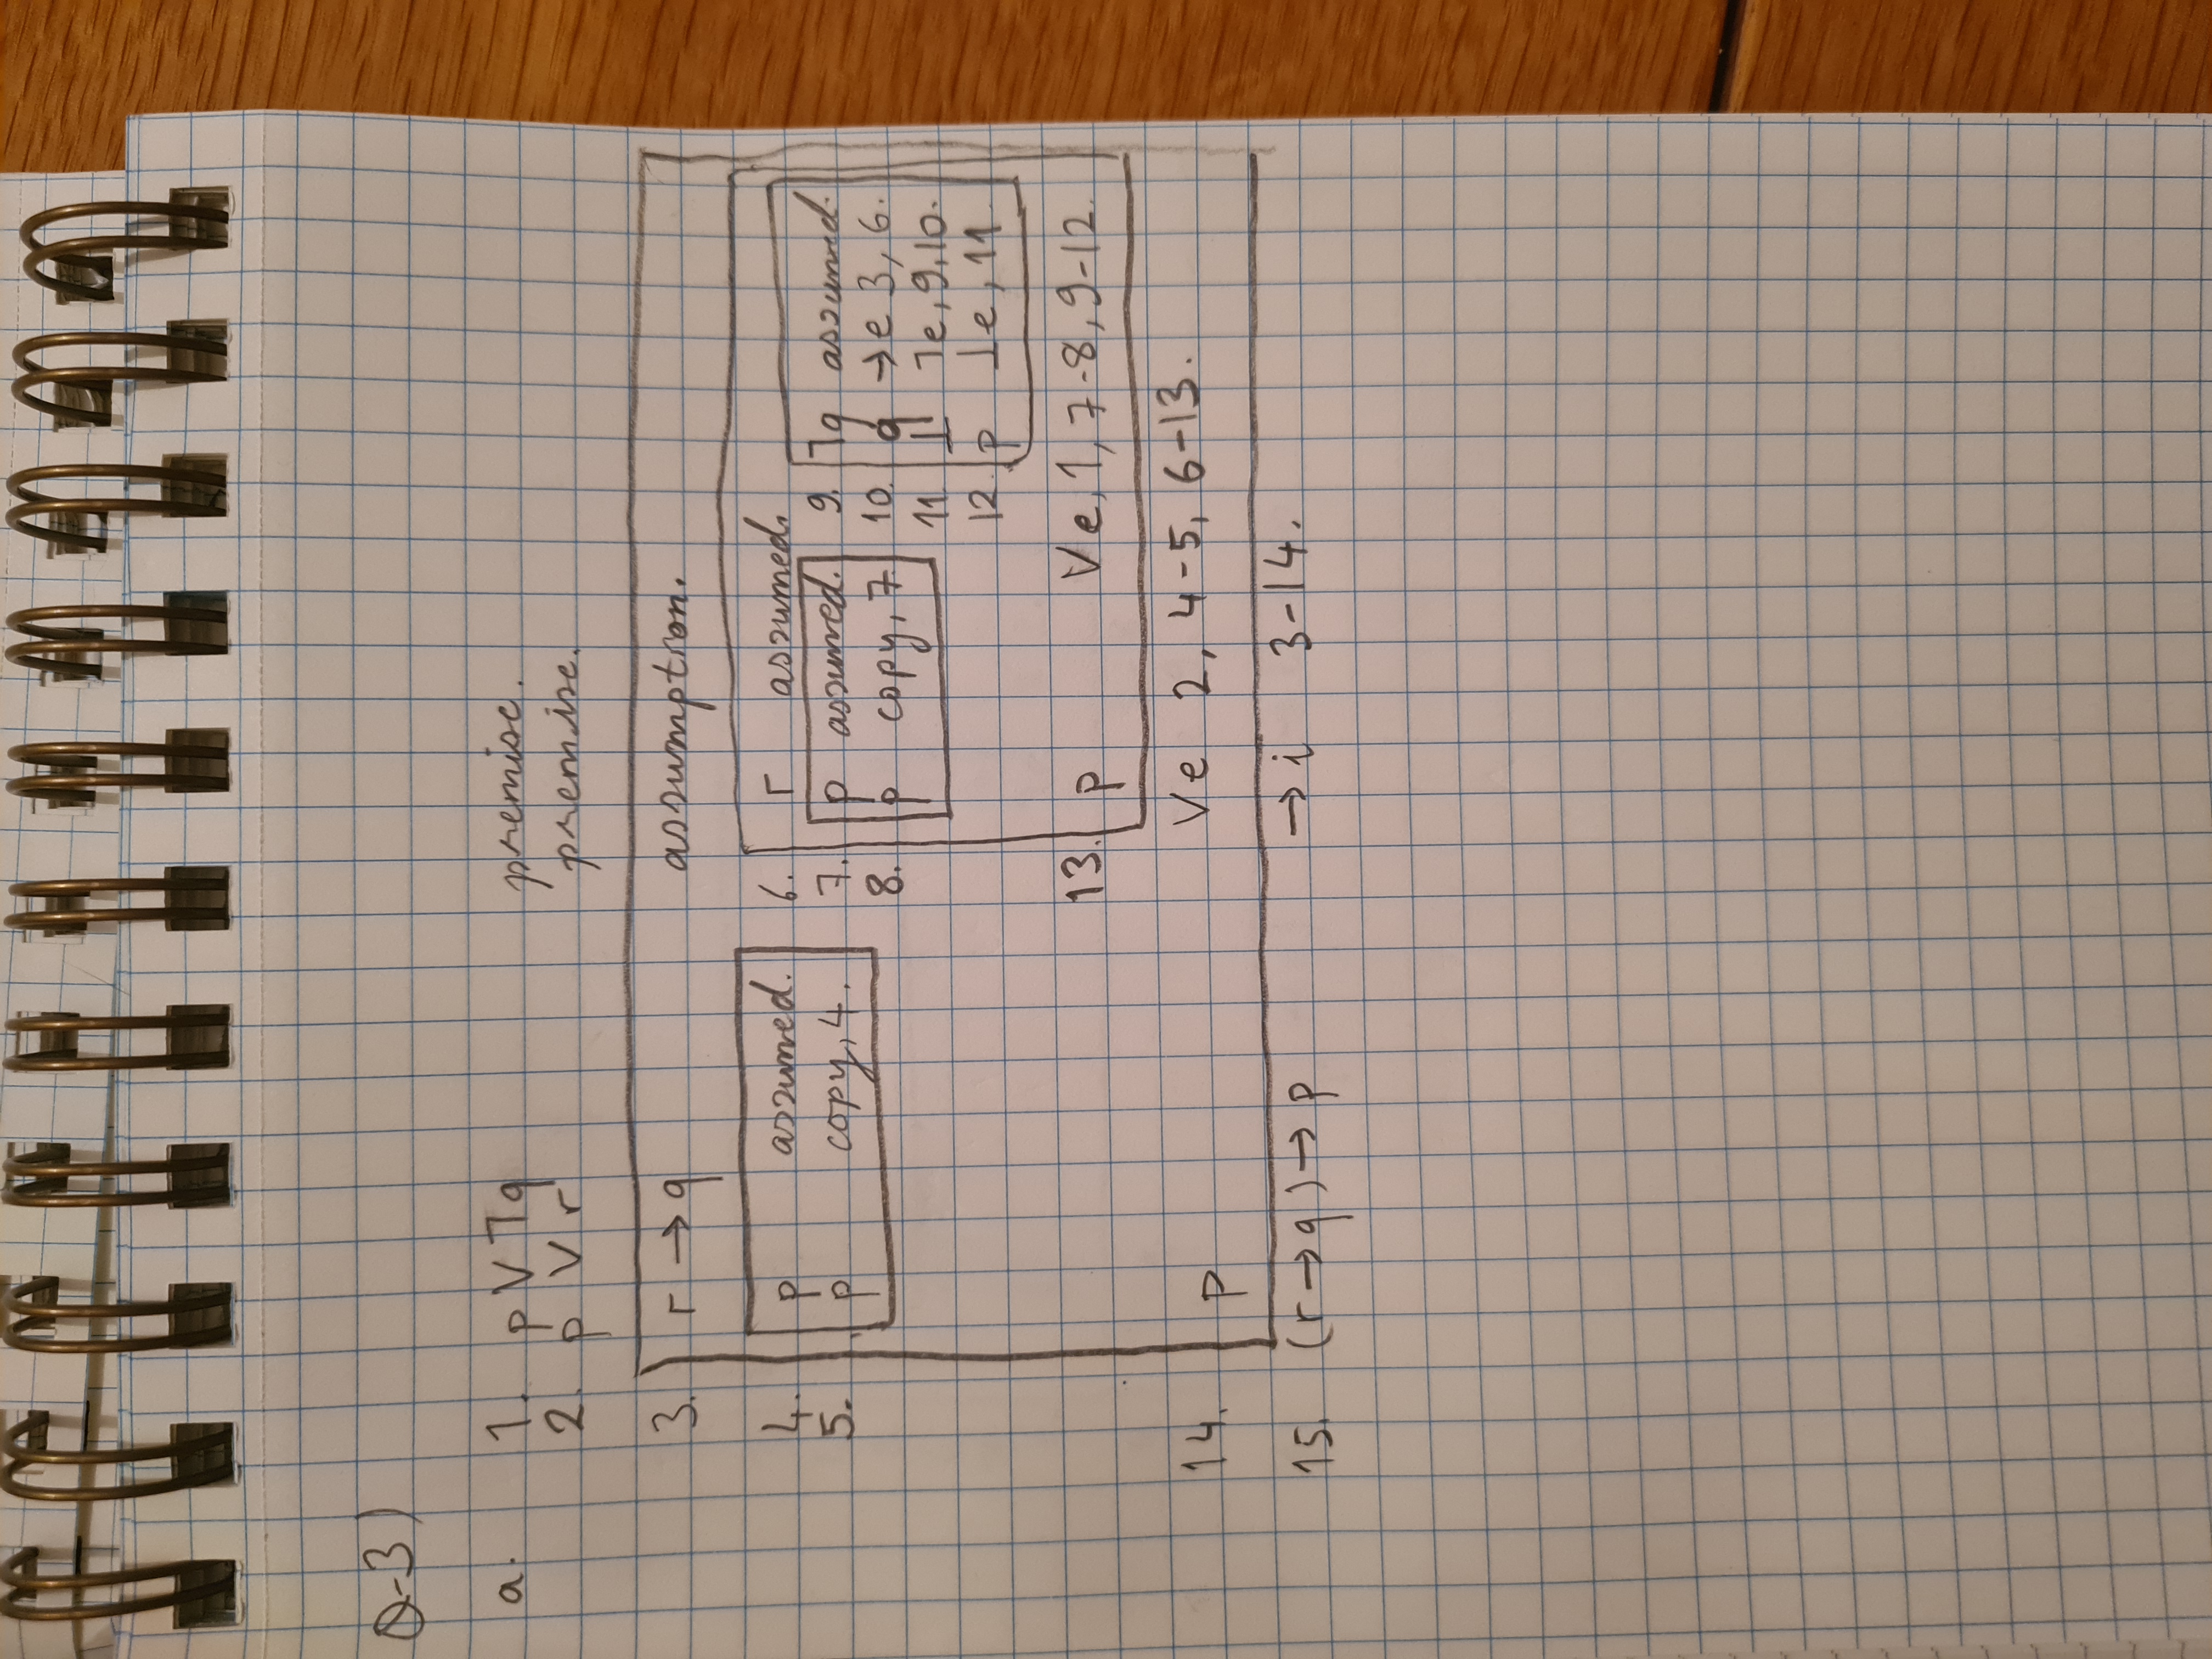 Q-3)
a. 1. p ∨ ¬q premise.
2. p ∨ r premise.
3. r → q assumption.
4. p assumed. 6. r assumed.
5. p copy, 4. 7. p assumed. 9. ¬q assumed.
8. p copy, 7 10. q →e 3, 6.
11 ⊥ ¬e, 9, 10.
12. p ⊥e, 11
13. p ∨e, 1, 7-8, 9-12.
14. p ∨e 2, 4-5, 6-13.
15. (r → q) → p →i 3-14.